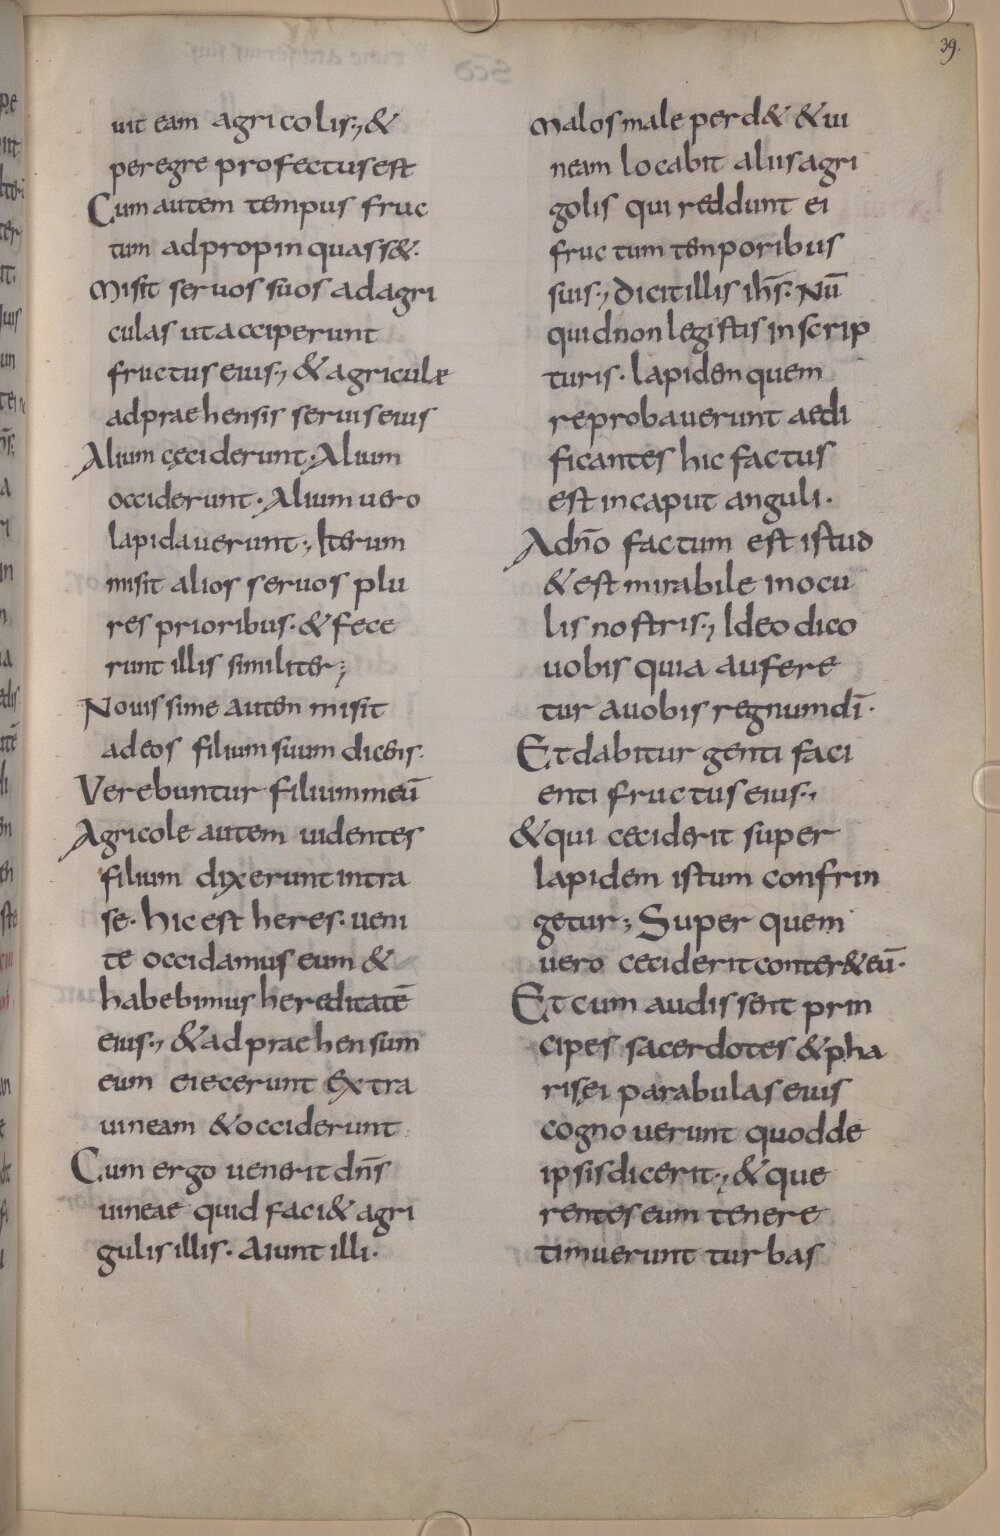 39.
uit eam agricolis·, &
peregre profectus est
Cum autem tempus fruc
tum adpropinquass&·
Misit seruos suos ad agri
culas ut acciperunt
fructus eius·, & agriculæ
adpraehensis seruis eius
Alium ceciderunt· Alium
occiderunt· Alium uero
lapidauerunt·, Iterum
misit alios seruos plu
res prioribus· & fece
runt illis similiter;
Nouissime autem misit
ad eos filium suum dicens·
Verebuntur filium meū
Agricole autem uidentes
filium dixerunt intra
se· hic est heres· ueni
te occidamus eum &
habebimus hereditatē
eius·, & adpraehensum
eum eiecerunt extra
uineam & occiderunt
Cum ergo uenerit dn̄s
uineae quid faci& agri
gulis illis· Aiunt illi·
Malos male perd& & ui
neam locabit aliis agri
golis qui reddunt ei
fructum temporibus
suis·, dicit illis ih̄s· Nū
quid non legistis in scrip
turis· lapidem quem
reprobauerunt aedi
ficantes hic factus
est in caput anguli·
A dn̄o factum est istud
& est mirabile in ocu
lis nostris·, Ideo dico
uobis quia aufere
tur a uobis regnum dī·
Et dabitur genti faci
enti fructus eius·,
& qui ceciderit super
lapidem istum confrin
getur; Super quem
uero ceciderit conter& eū·
Et cum audissent prin
cipes sacerdotes & pha
risei parabulas eius
cognouerunt quod de
ipsis dicerit·, & que
rentes eum tenere
timuerunt turbas